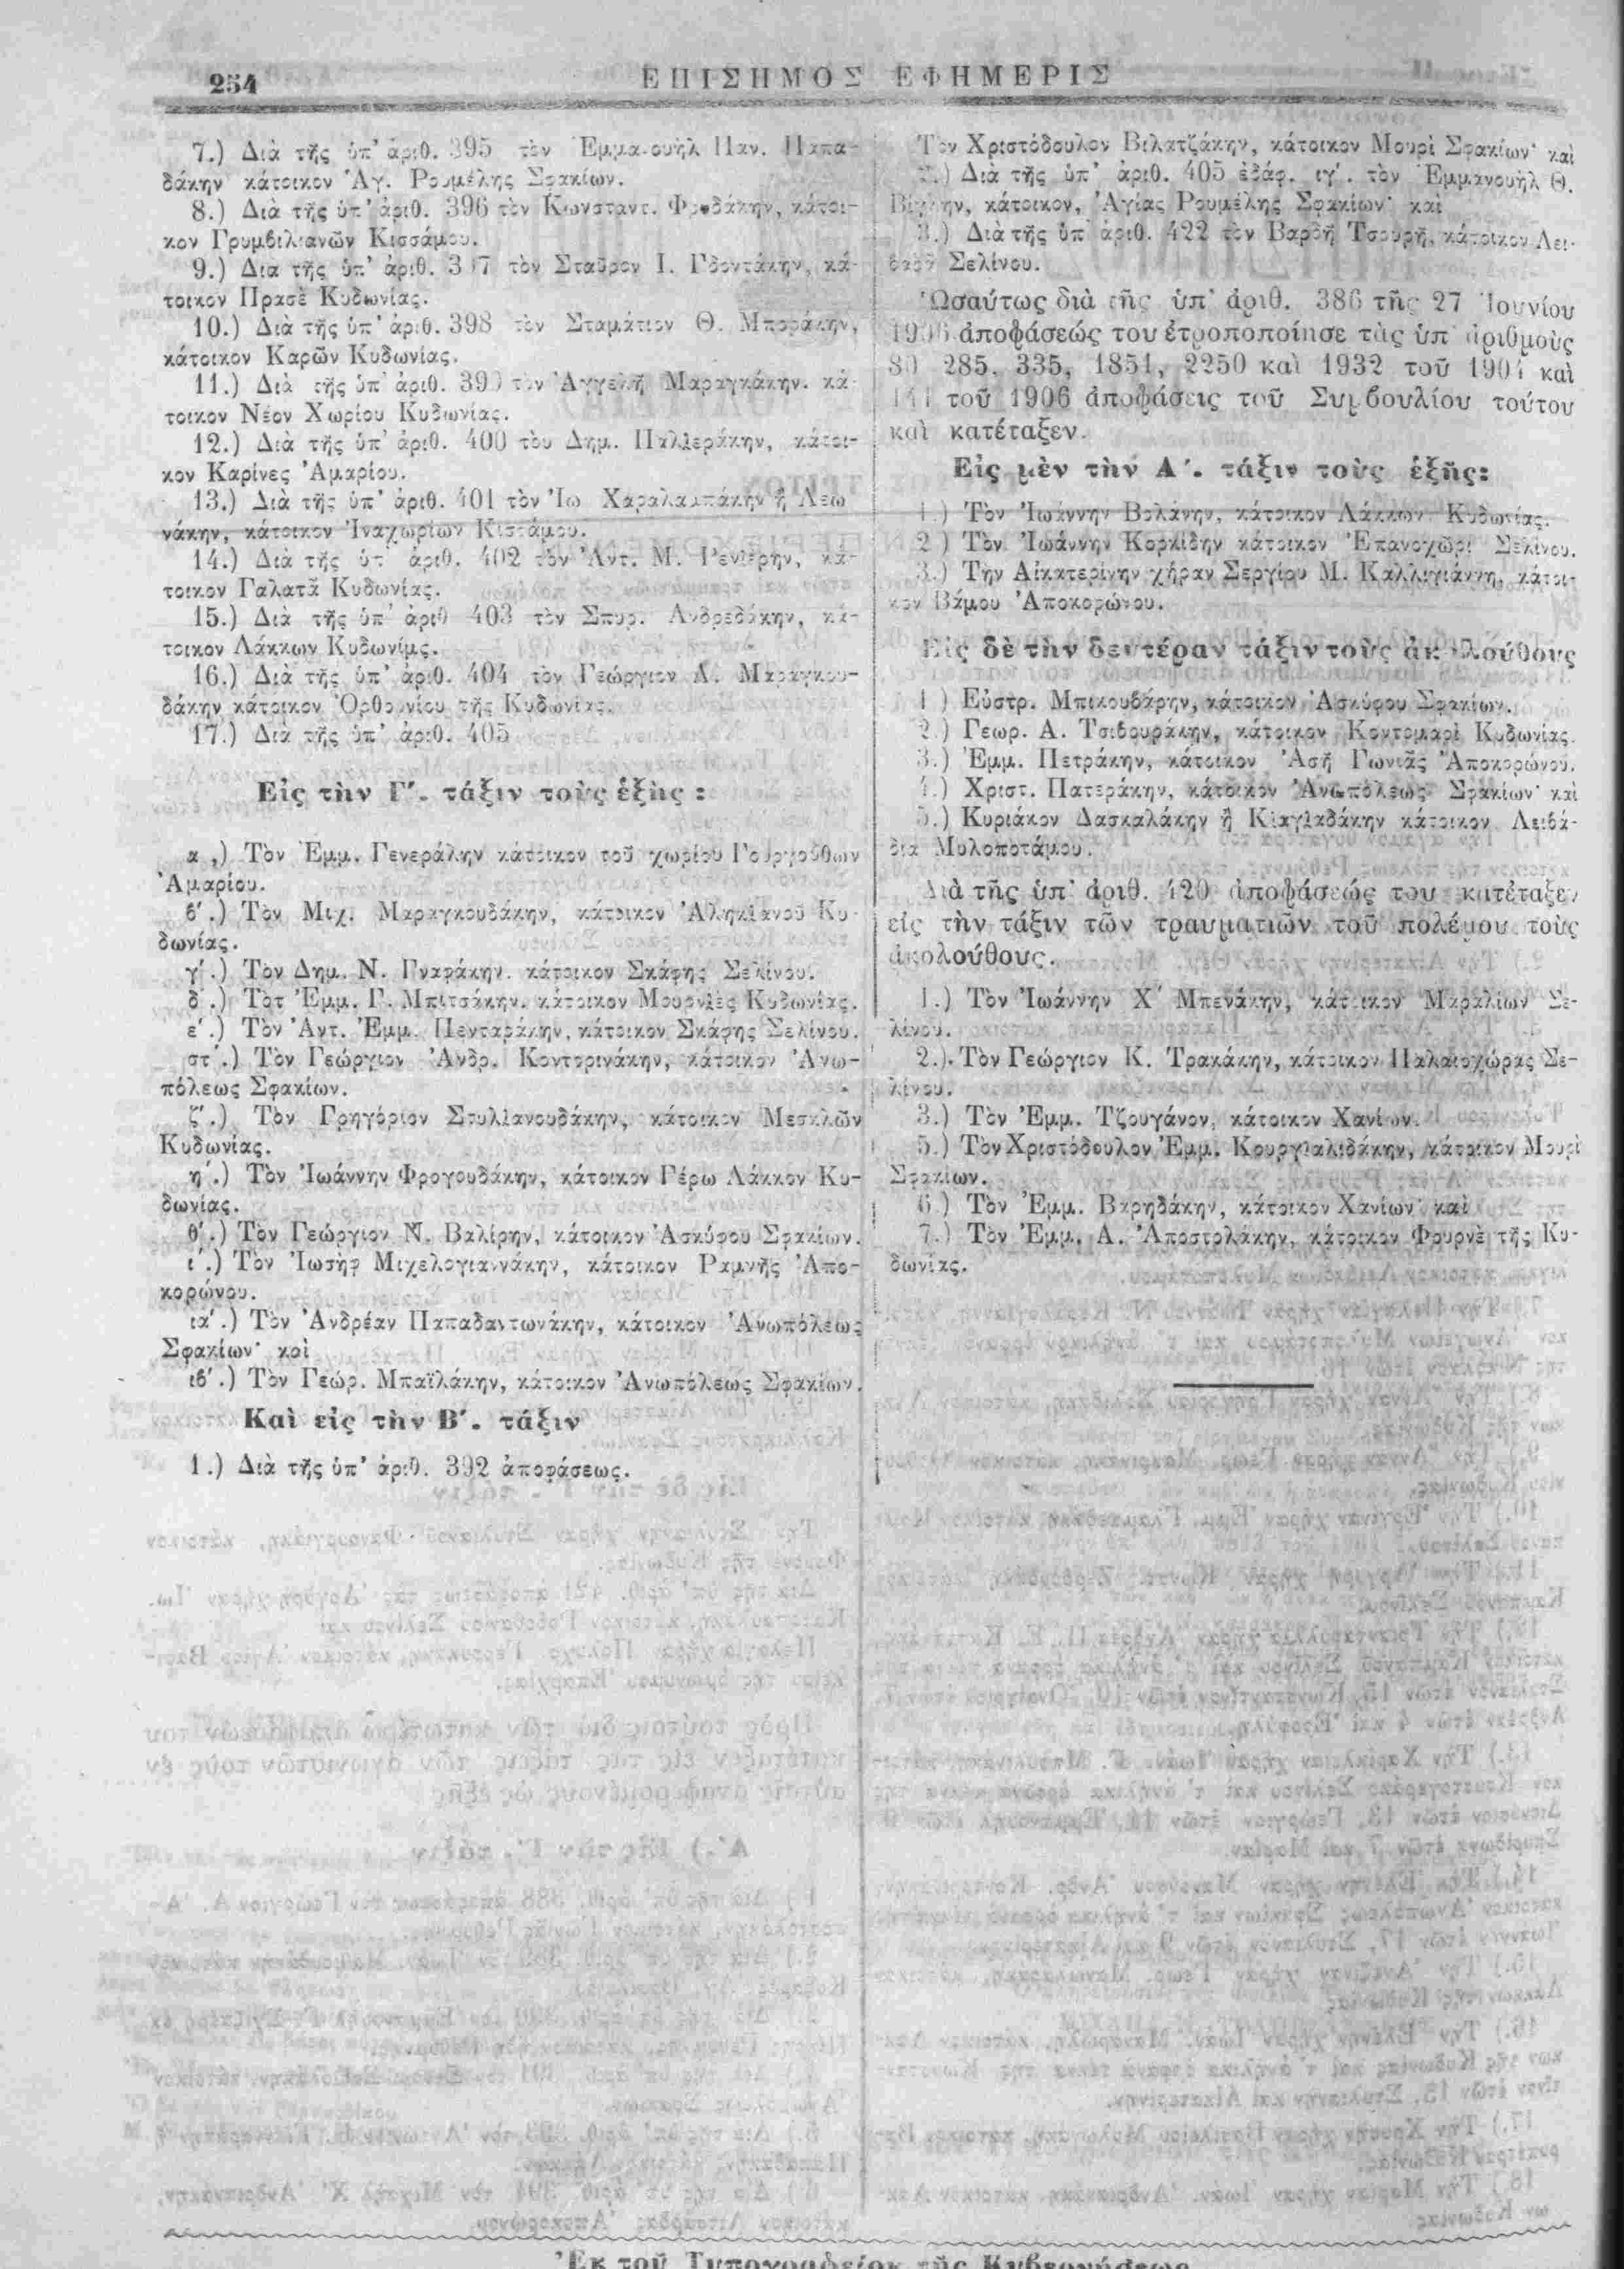 254
ΕΠΙΣΗΜΟΣ ΕΦΗΜΕΡΙΣ
7.) Διὰ τῆς ὑπ' ἀριθ. 395 τὸν Ἐμμανουὴλ Παν. Παπα-
δάκην κάτοικον Ἁγ. Ρουμέλης Σφακίων.
8.) Διὰ τῆς ὑπ' ἀριθ. 396 τὸν Κωνσταντ. κάτοι-
κον Γρυμβιλιανῶν Κισσάμου.
9.) Δια τῆς ὑπ' ἀριθ. 397 τὸν Σταῦρον Ι. Γδοντάκην, κά-
τοικον Πρασὲ Κυδωνίας.
10.) Διὰ τῆς ὑπ' ἀριθ. 398 τὸν Σταμάτιον Θ. Μποράκην,
κάτοικον Καρῶν Κυδωνίας.
11.) Διὰ τῆς ὑπ' ἀριθ. 399 τὸν Ἀγγελῆ Μαραγκάκην. κά-
τοικον Νέον Χωρίου Κυδωνίας.
12.) Διὰ τῆς ὑπ' ἀριθ. 400 τὸν Δημ. κάτοι-
κον Καρίνες Ἀμαρίου.
13.) Διὰ τῆς ὑπ' ἀριθ. 401 τὸν Ἰω Χαραλαμπάκην ἢ Λεω
νάκην, κάτοικον Ἰναχωρίων Κισσάμου.
14.) Διὰ τῆς ὑπ' ἀριθ. 402 τὸν Ἀντ. Μ. Ρενιέρην, κά-
τοικον Γαλατᾶ Κυδωνίας.
15.) Διὰ τῆς ὑπ' ἀριθ 403 τὸν Σπυρ. Ἀνδρεδάκην, κά-
τοικον Λάκκων Κυδωνίμς.
16.) Διὰ τῆς ὑπ' ἀριθ. 404 τὸν Γεώργιον Α. Μαραγκου-
δάκην κάτοικον Ὀρθουνίου τῆς Κυδωνίας.
17.) Διὰ τῆς ὑπ' ἀριθ. 405
Εἰς τὴν Γ'. τάξιν τοὺς ἑξῆς :
α΄,) Τὸν Ἐμμ. Γενεράλην κάτοικον τοῦ χωρίου Γουργούθων
Ἀμαρίου.
β'.) Τὸν Μιχ. Μαραγκουδάκην, κάτοικον Ἀληκιανοῦ Κυ-
δωνίας.
γ'.) Τὸν Δημ. Ν. Γναφάκην. κάτοικον Σκάφης Σελίνου.
δ'.) Τὸτ Ἐμμ. Γ. Μπιτσάκην. κάτοικον Μουρνιὲς Κυδωνίας.
ε'.) Τὸν Ἀντ. Ἐμμ. Πενταράκην, κάτοικον Σκάφης Σελίνου.
στ'.) Τὸν Γεώργιον Ἀνδρ. Κοντορινάκην, κάτοικον Ἀνω-
πόλεως Σφακίων.
ζ'.) Τὸν Γρηγόριον Στυλιανουδάκην, κάτοικον Μεσκλῶν
Κυδωνίας.
η'.) Τὸν Ἰωάννην Φρογουδάκην, κάτοικον Γέρω Λάκκον Κυ-
δωνίας.
θ'.) Τὸν Γεώργιον Ν. Βαλίρην, κάτοικον Ἀσκύφου Σφακίων.
ι'.) Τὸν Ἰωσὴφ Μιχελογιαννάκην, κάτοικον Ραμνῆς Ἀπο-
κορώνου.
ια'.) Τὸν Ἀνδρέαν Παπαδαντωνάκην, κάτοικον Ἀνωπόλεως
Σφακίων· κοὶ
ιβ'.) Τὸν Γεώρ. Μπαϊλάκην, κάτοικον Ἀνωπόλεως Σφακίων.
Καὶ εἰς τὴν Β'. τάξιν
1.) Διὰ τῆς ὑπ' ἀριθ. 392 ἀποφάσεως.
Τὸν Χριστόδουλον Βιλατζάκην, κάτοικον Μουρὶ Σφακίων· καὶ
2.) Διὰ τῆς ὑπ' ἀριθ. 405 ἐδάφ. ιγ'. τὸν Ἐμμανουὴλ Θ.
κάτοικον, Ἁγίας Ρουμέλης Σφακίων· καὶ
3.) Διὰ τῆς ὑπ' ἀριθ. 422 τὸν Βαρδῆ Τσουρῆ, κάτοικον Λει-
βαδᾶ Σελίνου.
Ὡσαύτως διὰ τῆς ὑπ' ἀριθ. 386 τῆς 27 Ἰουνίου
1906 ἀποφάσεώς του ἐτροποποίησε τὰς ὑπ' ἀριθμοὺς
80 285, 335, 1851, 2250 καὶ 1932 τοῦ 1904 καὶ
141 τοῦ 1906 ἀποφάσεις τοῦ Συμβουλίου τούτου
καὶ κατέταξεν.
Εἰς μὲν τὴν Α'. τάξιν τοὺς ἑξῆς:
1.) Τὸν Ἰωάννην Βολάνην, κάτοικον Λάκκων Κυδωνίας.
2.) Τὸν Ἰωάννην Κορκίδην κάτοικον Ἐπανοχῶρι Σελίνου.
3.) Τὴν Αἰκατερίνην χήραν Σεργίου Μ. Καλλιγιάννη, κάτοι-
κον Βάμου Ἀποκορώνου.
Εἰς δὲ τὴν δευτέραν τάξιν τοὺς ἀκολούθους
1.) Εὐστρ. Μπικουβάρην, κάτοικον Ἀσκύφου Σφακίων.
2.) Γεωρ. Α. Τσιβουράκην, κάτοικον Κοντομαρὶ Κυδωνίας.
3.) Ἐμμ. Πετράκην, κάτοικον Ἀσῆ Γωνιᾶς Ἀποκορώνου.
4.) Χριστ. Πατεράκην, κάτοικον Ἀνωπόλεως Σφακίων· καὶ
5.) Κυριάκον Δασκαλάκην ἢ κάτοικον Λειβά-
δια Μυλοποτάμου.
Διὰ τῆς ὑπ' ἀριθ. 420 ἀποφάσεώς του κατέταξεν
εἰς τὴν τάξιν τῶν τραυματιῶν τοῦ πολέμου τοὺς
ἀκολούθους.
1.) Τὸν Ἰωάννην Χ' Μπενάκην, κάτοικον Μαραλίων Σε-
λίνου.
2.) Τὸν Γεώργιον Κ. Τρακάκην, κάτοικον Παλαιοχώρας Σε-
λίνου.
3.) Τὸν Ἐμμ. Τζουγάνον, κάτοικον Χανίων.
5.) Τὸν Χριστόδουλον Ἐμμ. Κουργιαλιδάκην, κάτοικον Μουρὶ
Σφακίων.
6.) Τὸν Ἐμμ. Βαρηδάκην, κάτοικον Χανίων καὶ
7.) Τὸν Ἐμμ. Α. Ἀποστολάκην, κάτοικον Φουρνὲ τῆς Κυ-
δωνίας.
Ἐκ τοῦ Τυπογραφείου τῆς Κυβερνήσεως